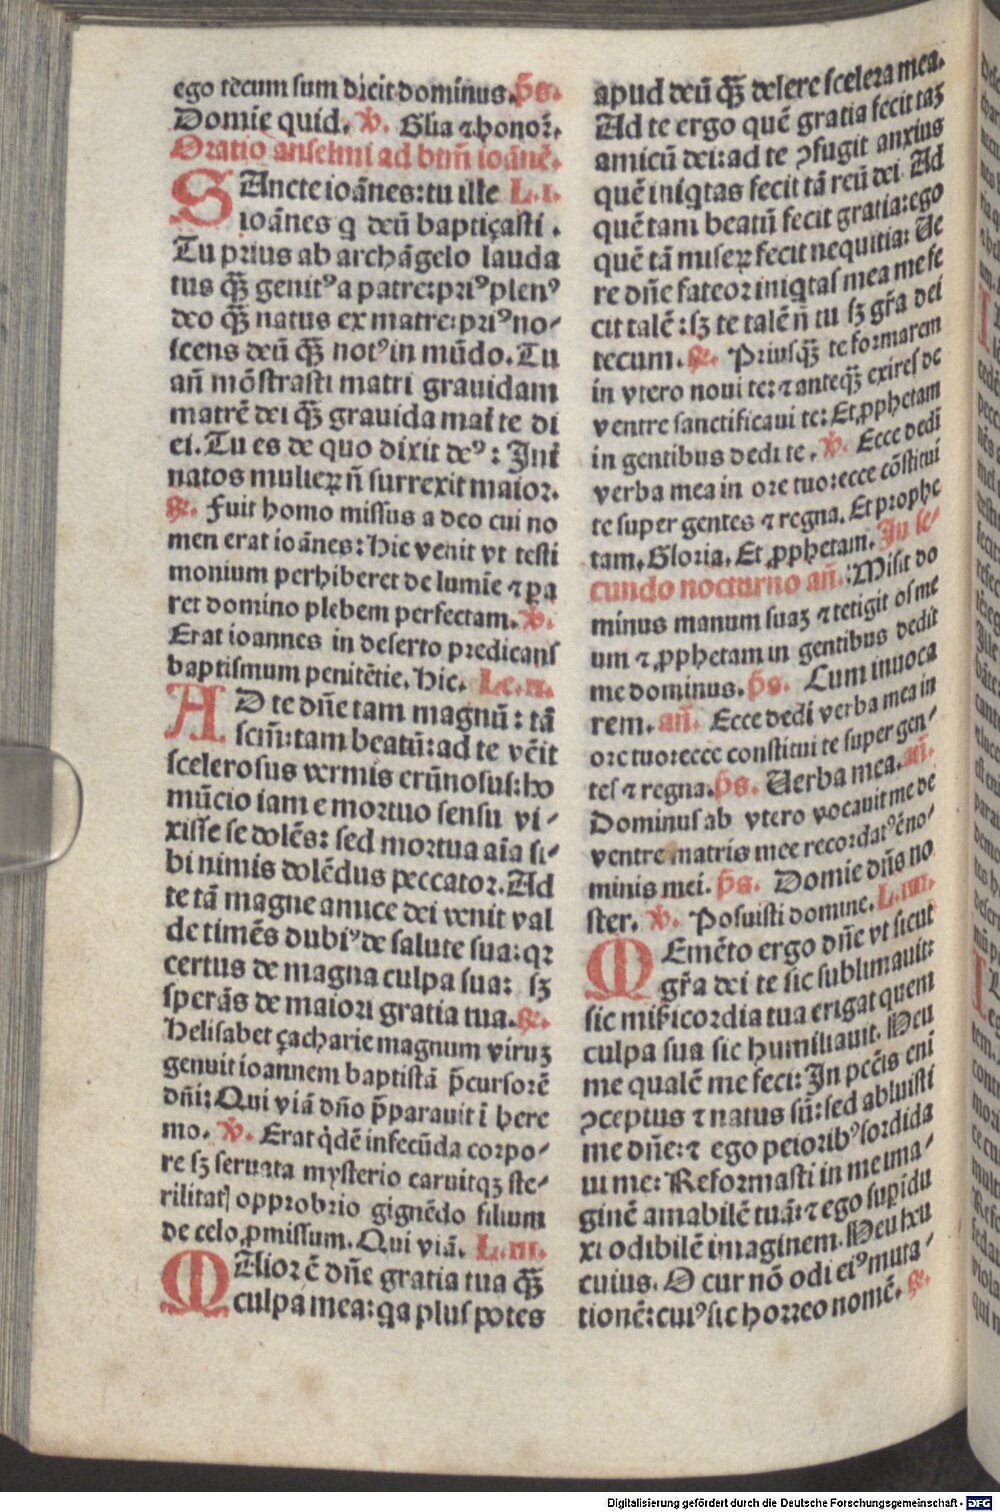 ego tecum sum dicit dominus. p̄s.
Domīe quid. ℣. Gl̄ia ⁊ honoꝛ̄.
Oratio anselmi ad btm̄ ioānē.
SAncte ioānes: tu ille L. i.
ioānes q deū baptiçasti.
Tu prius ab archāgelo lauda
tus qꝫ̄ genitꝰ a patre: priꝰ plenꝰ
deo qꝫ̄ natus ex matre: priꝰ no-
scens deū qꝫ̄ notꝰ in mūdo. Tu
an̄ mōstrasti matri grauidam
matrē dei qꝫ̄ grauida mat̄ te di
ei. Tu es de quo dixit deꝰ: Int̄
natos mulieꝝ n̄ surrexit maior.
℟. Fuit homo missus a deo cui no
men erat ioānes: hic venit vt testi
monium perhiberet de lumīe ⁊ pa
ret domino plebem perfectam. ℣.
Erat ioannes in deserto predicans
baptismum penitētie. hic. Le. ii.
AD te dn̄e tam magnū: tā
scm̄: tam beatū: ad te vēit
scelerosus vermis erūnosus: ho
mūcio iam e mortuo sensu vi-
xisse se dolēs: sed mortua aīa si-
bi nimis dolēdus peccator. Ad
te tā magne amice dei venit val
de timēs dubiꝰ de salute sua: qꝛ
certus de magna culpa sua: sꝫ
sperās de maiori gratia tua. ℟.
Helisabet çacharie magnum viruꝫ
genuit ioannem baptistā p̄cursorē
dn̄i: Qui viā dn̄o p̄parauit ī here
mo. ℣. Erat q̇dē infecūda corpo-
re sꝫ seruata mysterio caruitqꝫ ste-
rilitatꝭ opprobrio gignēdo filium
de celo ꝓmissum. Qui viā. L. iii.
MAior ē dn̄e gratia tua qꝫ̄
culpa mea: qa plus potes
apud deū qꝫ̄ delere scelera mea.
Ad te ergo quē gratia fecit taꝫ
amicū dei: ad te ꝯfugit anxius
quē iniqtas fecit tā reū dei. Ad
quē tam beatū fecit gratia: ego
quē tā miseꝝ fecit nequitia: Ve
re dn̄e fateor iniqtas mea me fe
cit talē: sꝫ te talē n̄ tu sꝫ gr̄a dei
tecum. ℟. Priusqꝫ̄ te formarem
in vtero noui te: ⁊ anteqꝫ̄ exires de
ventre sanctificaui te: Et ꝓphetam
in gentibus dedi te. ℣. Ecce dedi
verba mea in ore tuo: ecce cōstitui
te super gentes ⁊ regna. Et prophe
tam. Gloria. Et ꝓphetam. In se-
cundo nocturno an̄.: Misit do
minus manum suaꝫ ⁊ tetigit os me
um ⁊ ꝓphetam in gentibus dedit
me dominus. p̄s. Cum inuoca
rem. an̄. Ecce dedi verba mea in
ore tuo: ecce constitui te super gen-
tes ⁊ regna. p̄s. Verba mea. an̄.
Dominus ab vtero vocauit me de
ventre matris mee recordatꝰ ē no-
minis mei. p̄s. Domīe dn̄s no
ster. ℣. Posuisti domine. L. iiii.
MEmēto ergo dn̄e vt sicut
gr̄a dei te sic sublimauit:
sic mīsicordia tua erigat quem
culpa sua sic humiliauit. Heu
me qualē me feci: In pcc̄is eni
ꝯceptus ⁊ natus sū: sed abluisti
me dn̄e: ⁊ ego peioribꝰ sordida
ui me: Reformasti in me ima-
ginē amabilē tuā: ⁊ ego supīdu
xi odibilē imaginem. Heu heu
cuius. O cur nō odi eiꝰ muta-
tionē: cuiꝰ sic horreo nomē. ℟.
Digitalisierung gefördert durch die Deutsche Forschungsgemeinschaft - DFG